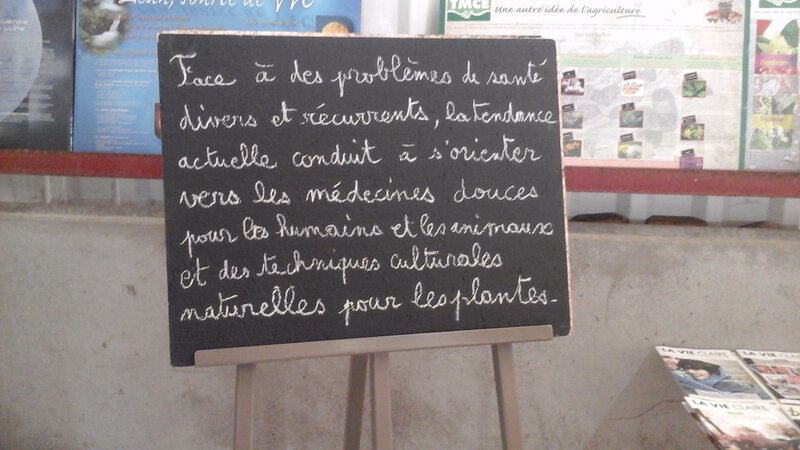 TMCE
Une autre idée de l'agriculture
Face à des problèmes de santé
divers et récurrents, la tendance
actuelle conduit à s'orienter
vers les médecines douces
pour les humains et les animaux
et des techniques culturales
naturelles pour les plantes.
LA VIE CLAIRE
LA VIE CLAIRE